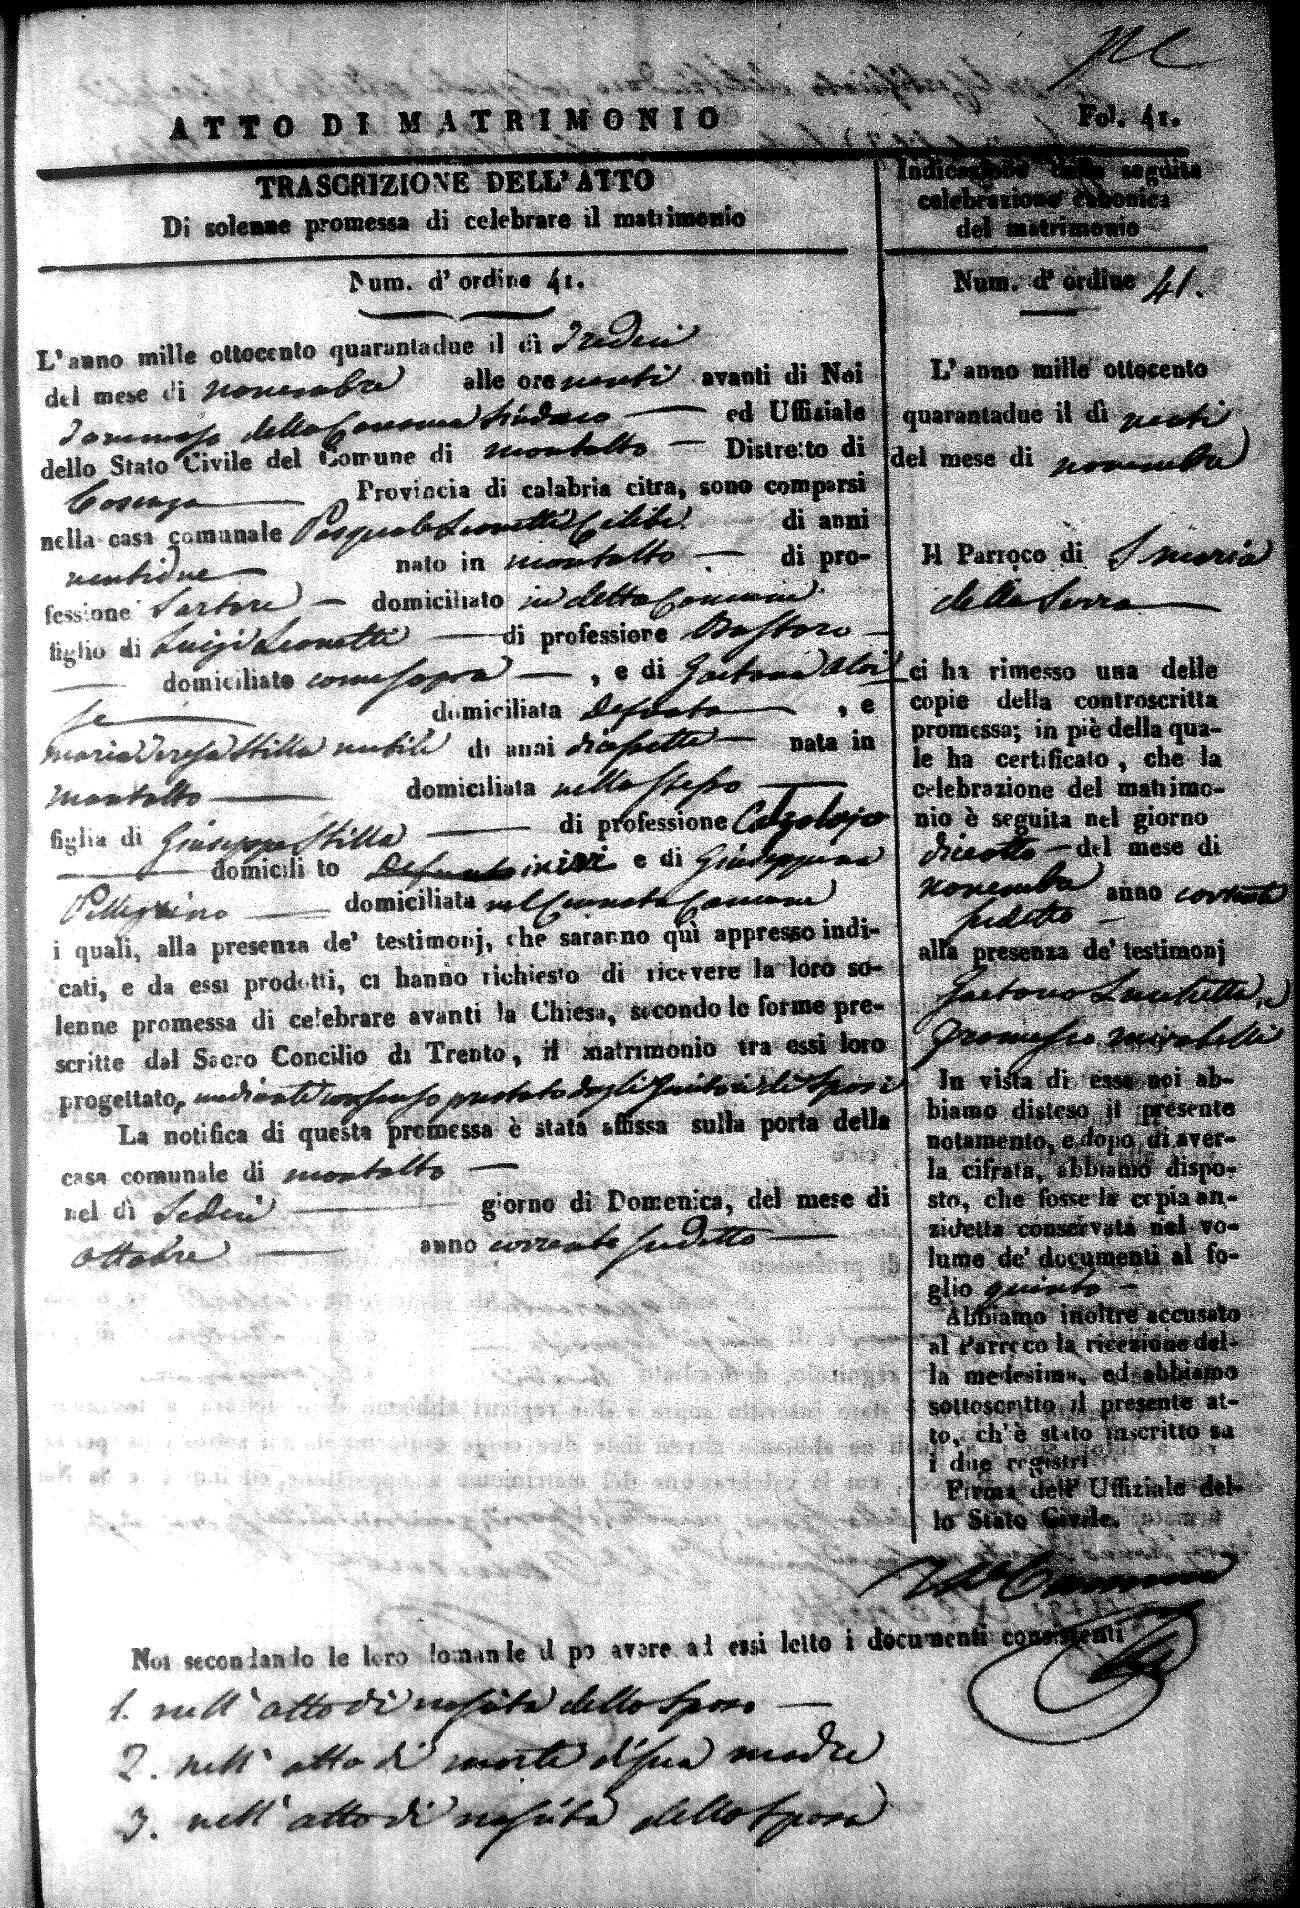 ATTO DI MATRIMONIO
Fol. 41.
TRASCRIZIONE DELL'ATTO
Di solenne promessa di celebrare il matrimonio
Num. d'ordine 41.
L'anno mille ottocento quarantadue il dì Tredici
del mese di novembre alle ore venti avanti di Noi
Tommaso della Sindaco ed Uffiziale
dello Stato Civile del Comune di montalto Distretto di
Cosenza Provincia di calabria citra, sono comparsi
nella casa comunale Pasquale Leonetti Celibe di anni
ventidue nato in montalto di pro-
fessione Sartore domiciliato in detto Comune
figlio di Luigi Leonetti di professione
domiciliato come sopra , e di Gaetana Aloi
se domiciliata Defunta , e
maria Teresa Stilla nubile di anni diciassette nata in
montalto domiciliata nello stesso
figlia di Giuseppe Stilla di professione Calzolajo
domicili to Defunto ivi e di Giuseppina
Pellegrino domiciliata nel Comune
i quali, alla presenza de' testimonj, che saranno quì appresso indi-
cati, e da essi prodotti, ci hanno richiesto di ricevere la loro so-
lenne promessa di celebrare avanti la Chiesa, secondo le forme pre-
scritte dal Sacro Concilio di Trento, il matrimonio tra essi loro
progettato, mediante consenso prestato dagli Genitori de Sposi
La notifica di questa promessa è stata affissa sulla porta della
casa comunale di montalto
nel dì Sedici giorno di Domenica, del mese di
Ottobre anno corrente sudetto
Noi secondando le loro domande d po avere ad essi letto i documenti consistenti
1. nell'atto di nascita dello Sposo
2. nell'atto di morte di sua madre
3. nell'atto di nascita della Sposa
Indicazione della seguita
celebrazione canonica
del matrimonio
Num. d'ordine 41.
L'anno mille ottocento
quarantadue il dì venti
del mese di novembre
Il Parroco di S maria
della Serra
ci ha rimesso una delle
copie della controscritta
promessa; in piè della qua-
le ha certificato, che la
celebrazione del matrimo-
nio è seguita nel giorno
diciotto del mese di
novembre anno corrente
sudetto
alla presenza de' testimonj
Gaetano Lucchetta, e
Francesco mirabelli
In vista di essa noi ab-
biamo disteso il presente
notamento, e dopo di aver-
la cifrata, abbiamo dispo-
sto, che fosse la copia an-
zidetta conservata nel vo-
lume de' documenti al fo-
glio quinto
Abbiamo inoltre accusato
al Parroco la ricezione del-
la medesima, ed abbiamo
sottoscritto il presente at-
to, ch'è stato inscritto su
i due registri
Firma dell' Uffiziale del-
lo Stato Civile.